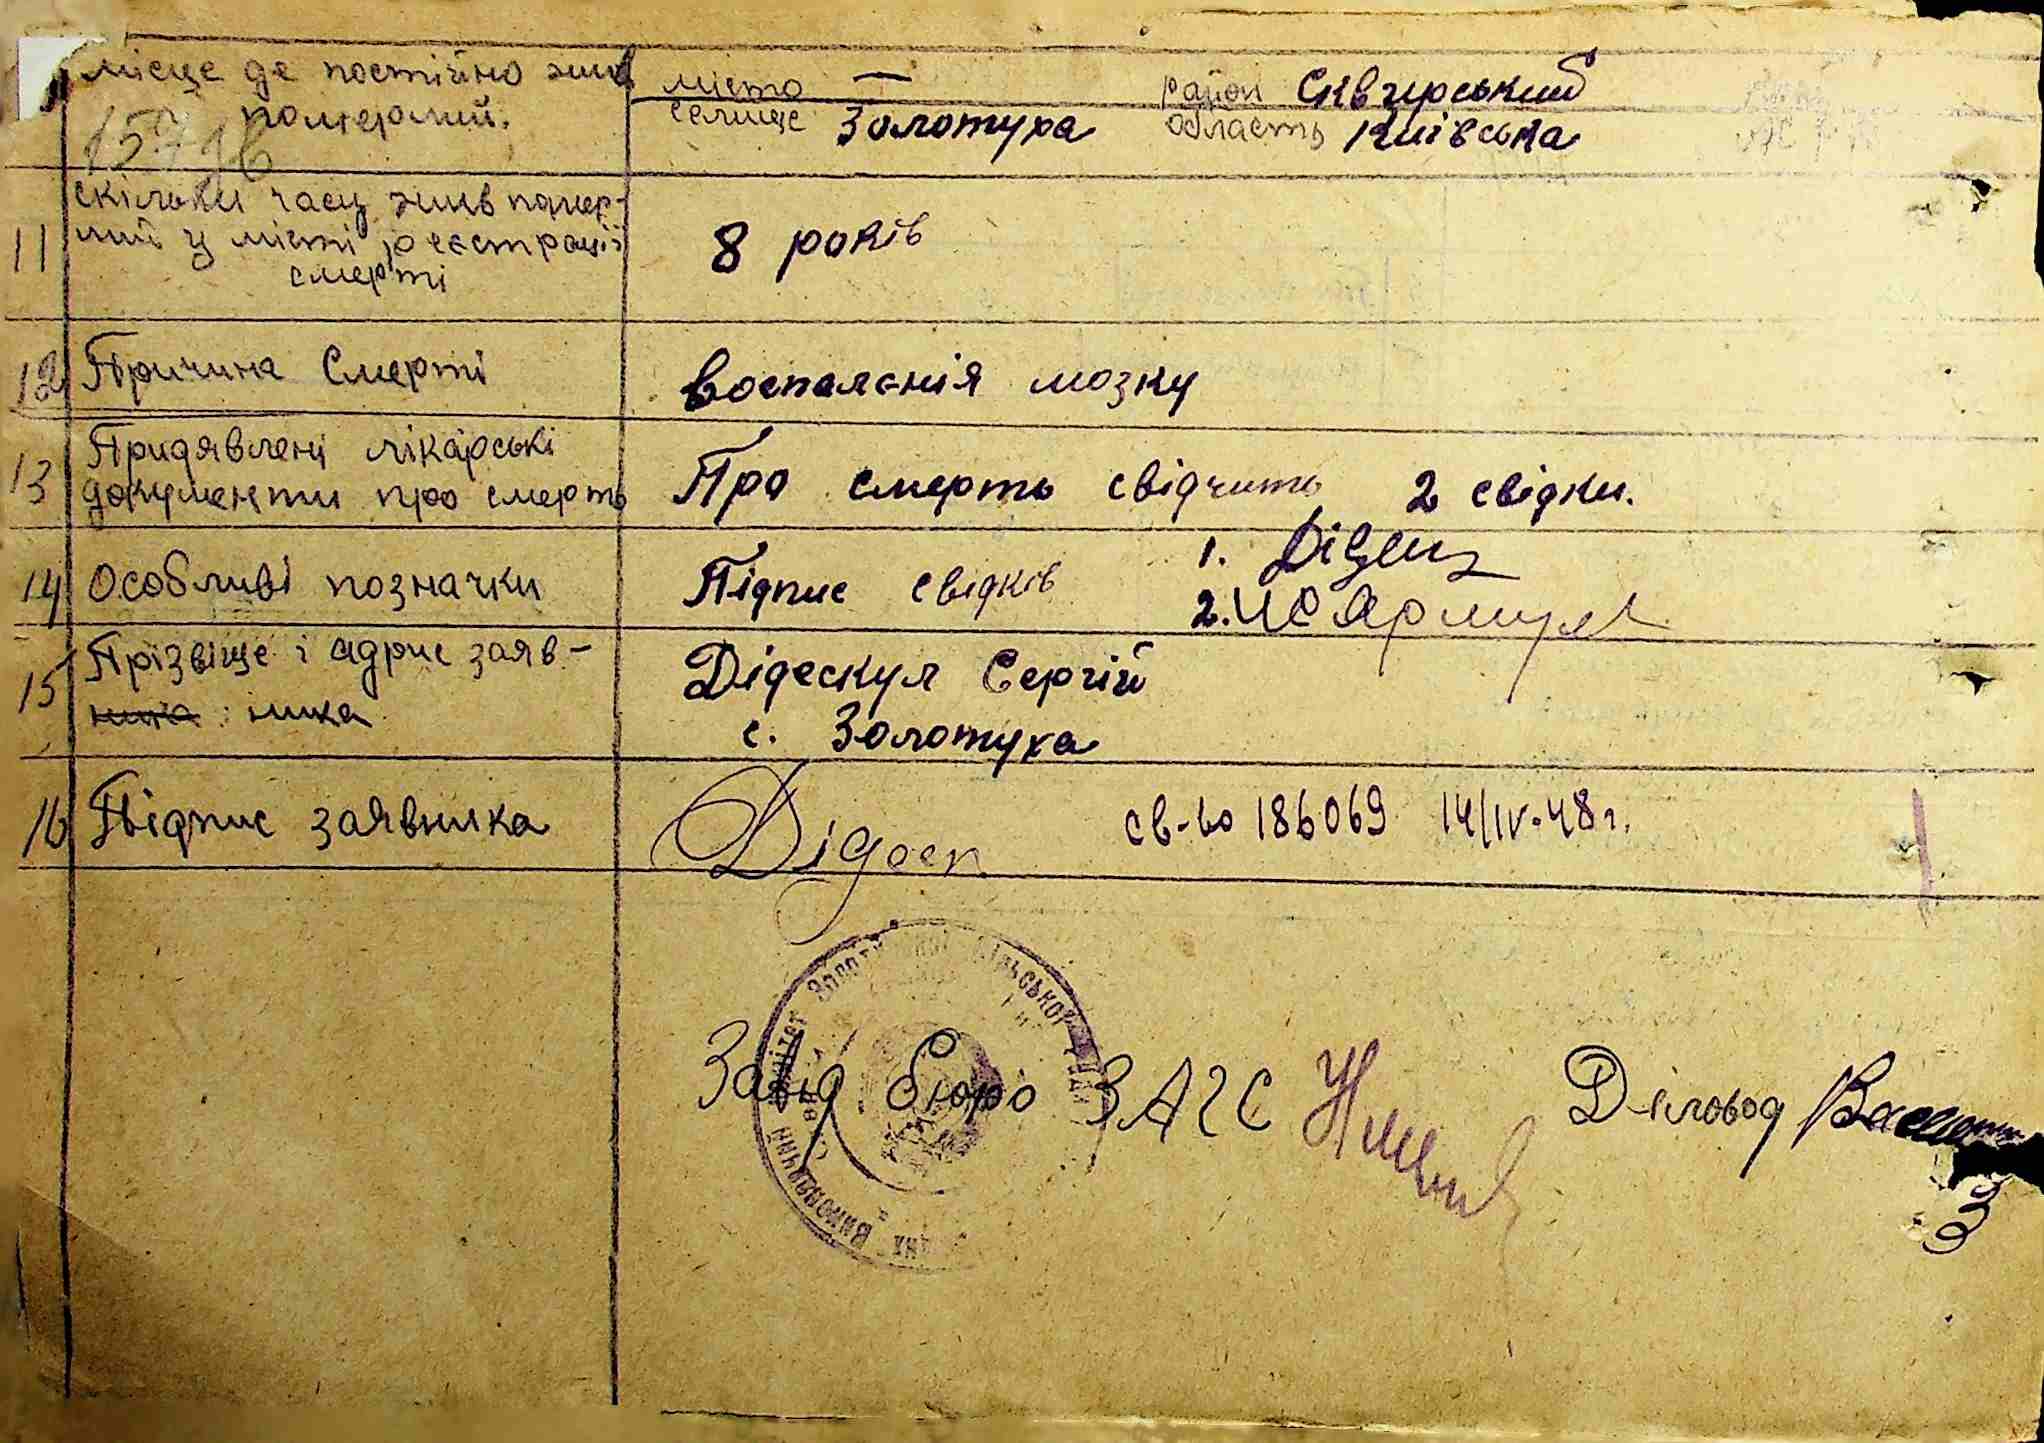 місце де постійно жив
померлий.
місто —
селище Золотуха
район Сквирський
область Київська
11 скільки часу жив помер-
лий у місті реєстрації
смерті
8 років
12 Причина Смерті
воспаленія мозку
13 Придявлені лікарські
документи про смерть
Про смерть свідчить 2 свідки.
14 Особливі позначки
Підпис свідків
1.
2.
15 Прізвіще і адрис заяв-
ника: ника
Дідескул Сергій
с. Золотуха
16 Підпис заявника
Дідеск
св-во 186069 14/IV-48 г.
Завід бюро ЗАГС
Діловод